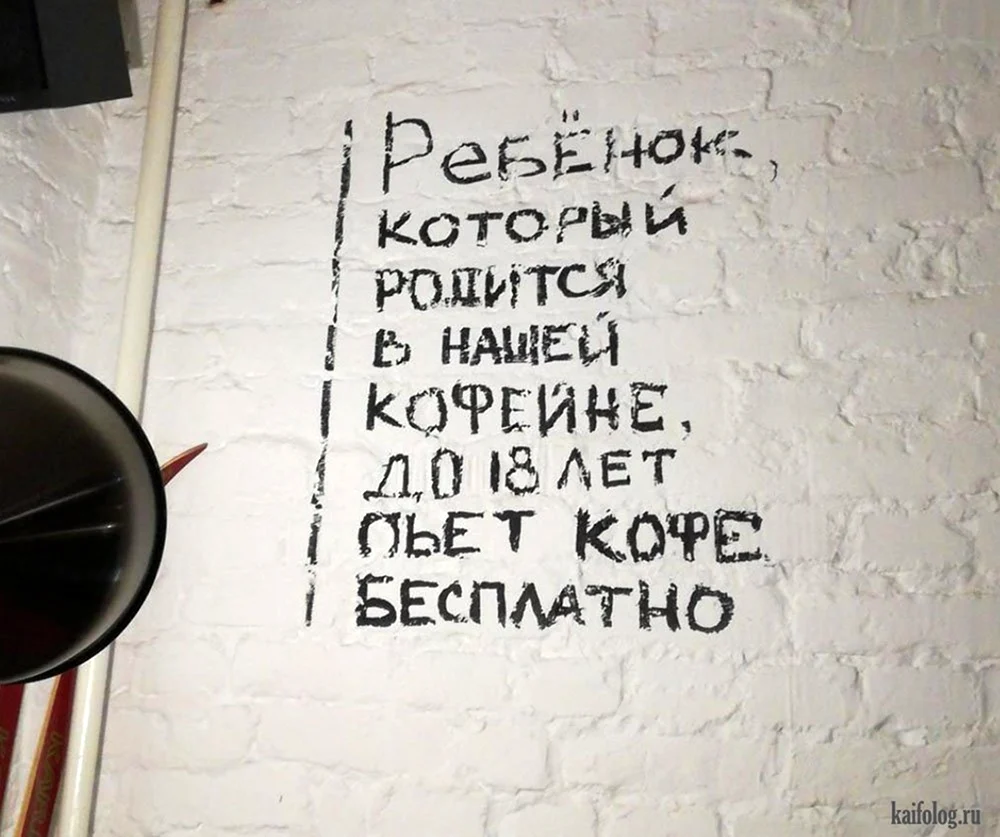 Ребёнок,
который
родится
в нашей
кофейне,
до 18 лет
пьет кофе
бесплатно
kaifolog.ru